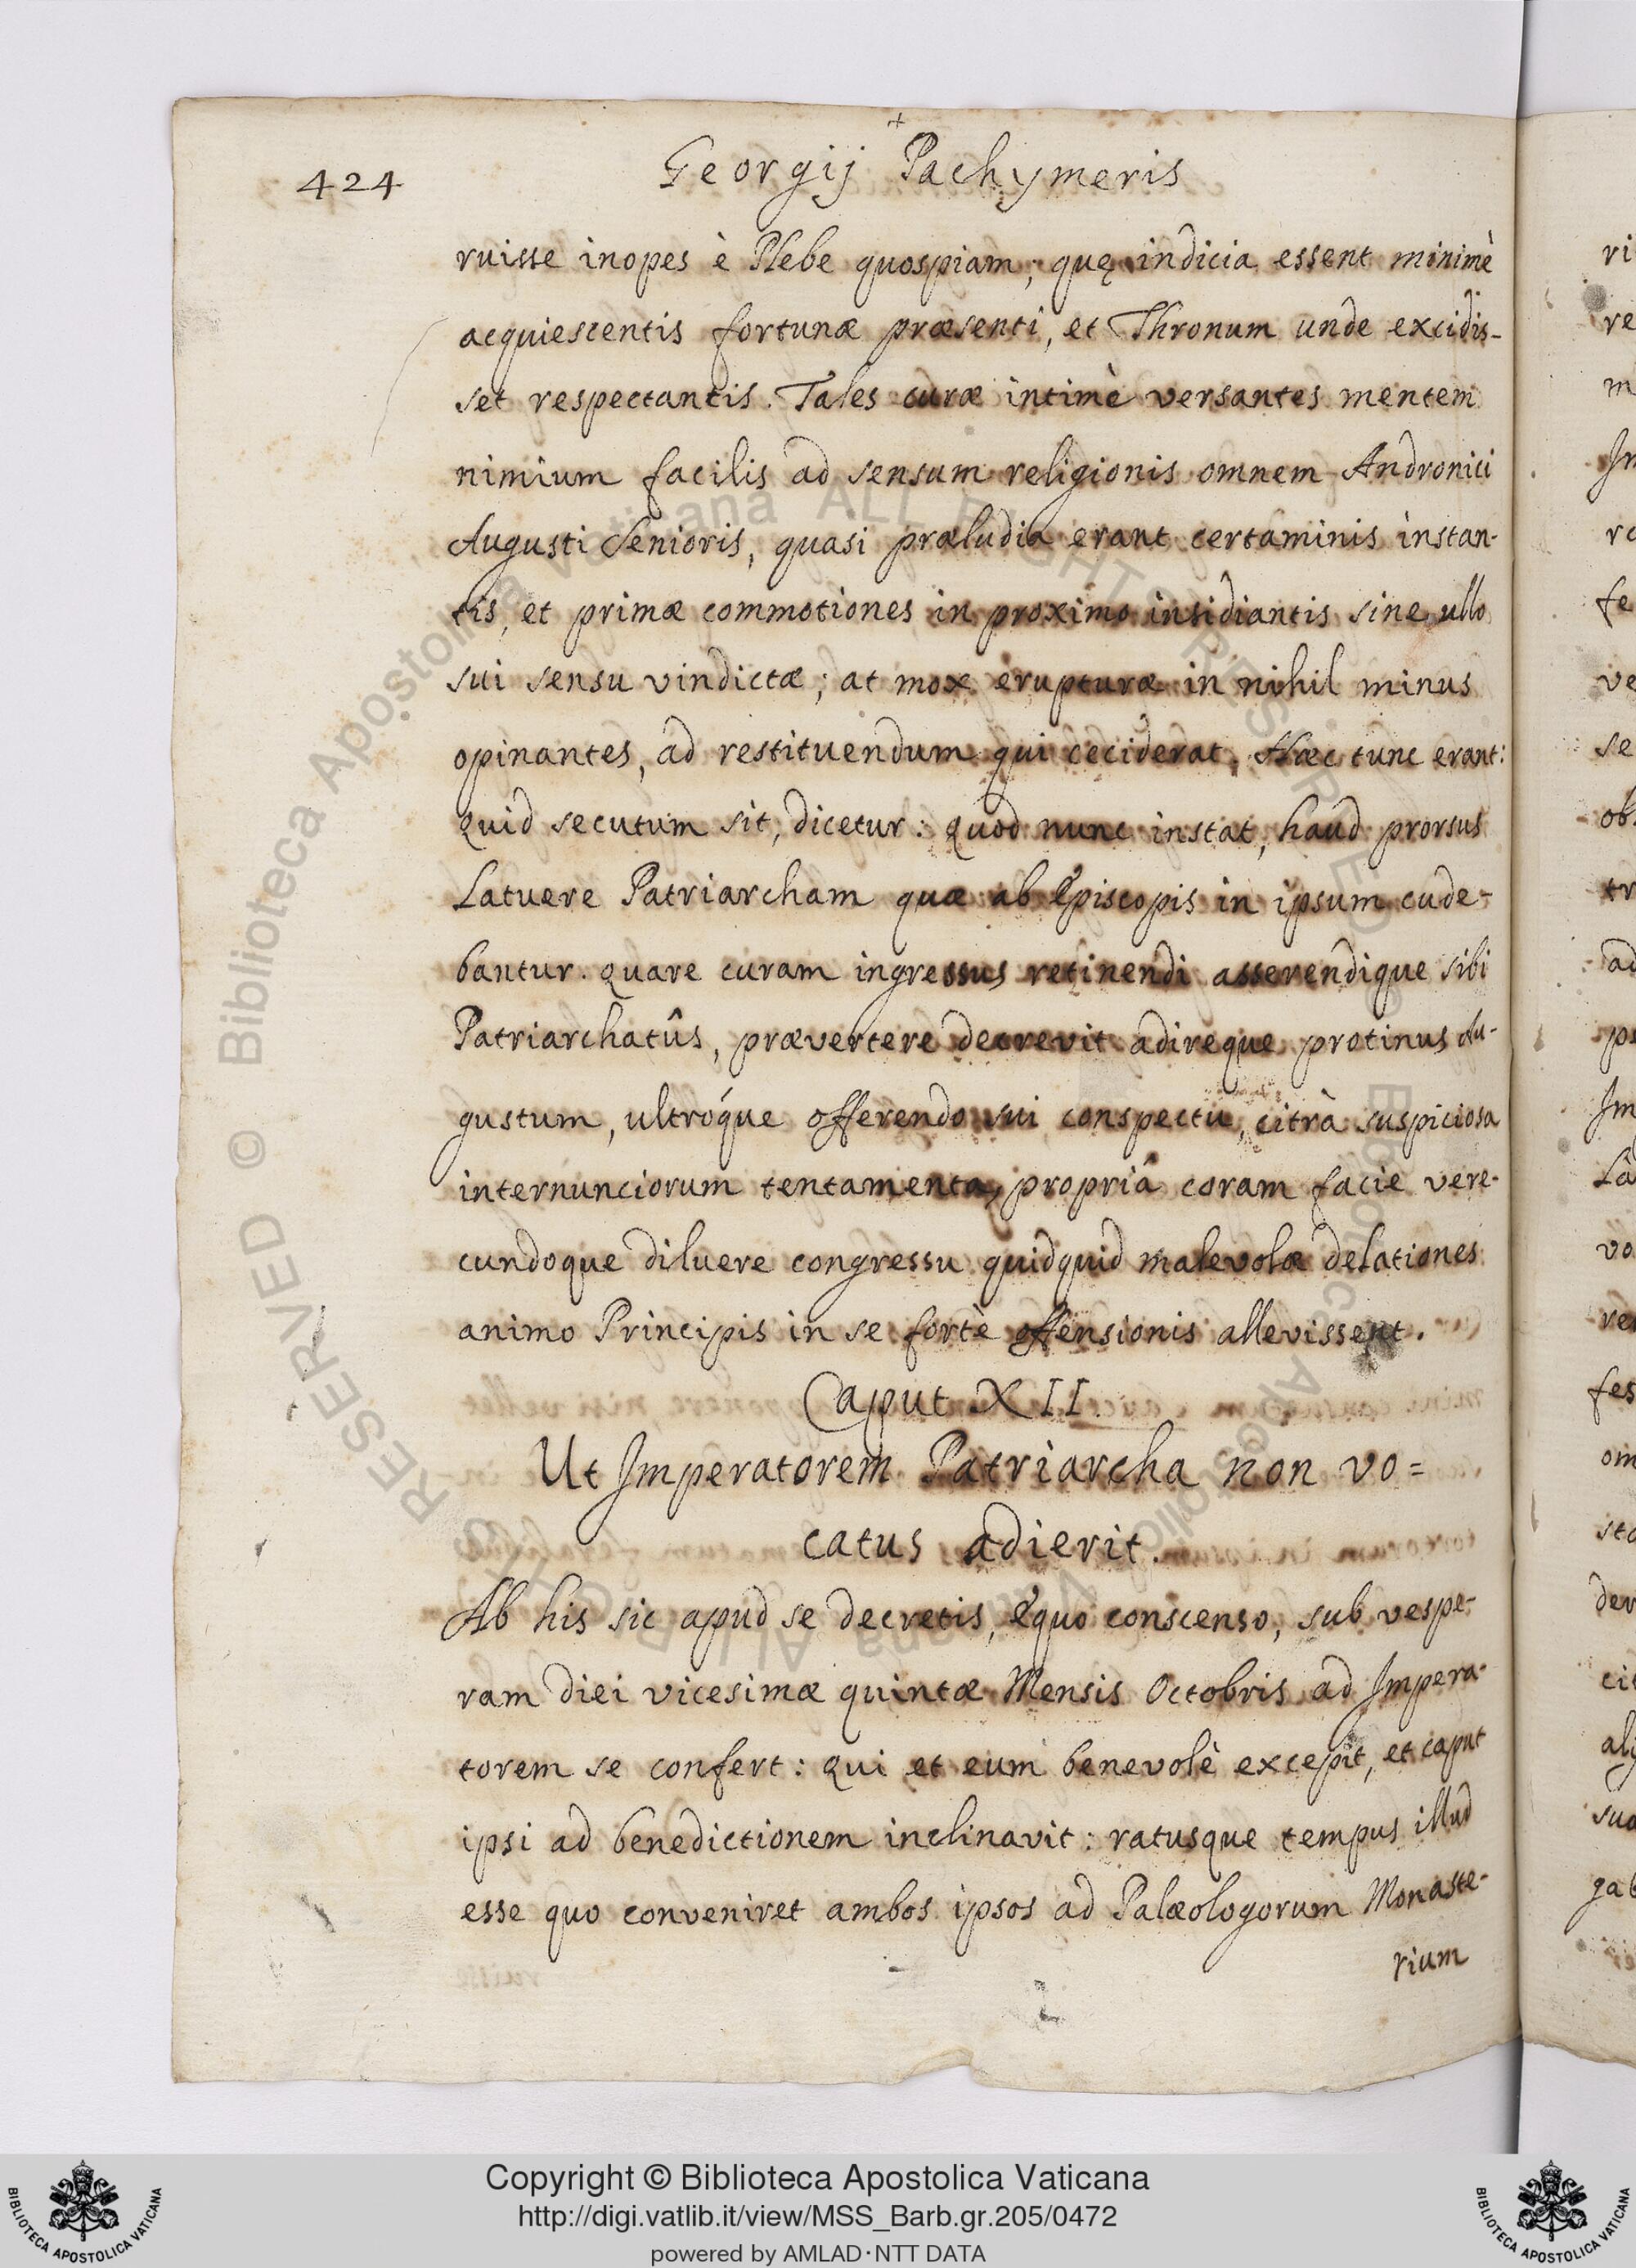 424
Georgij Pachymeris
ruisse inopes è Plebe quospiam; quę indicia essent minimè
acquiescentis fortunæ præsenti, et Thronum unde excidis-
set respectantis. Tales curæ intimè versantes mentem
nimium facilis ad sensum religionis omnem Andronici
Augusti Senioris, quasi præludia erant certaminis instan-
tis, et primæ commotiones in proximo insidiantis sine ullo
sui sensu vindictæ; at mox erupturæ in nihil minus
opinantes, ad restituendum qui ceciderat. Hæc tunc erant:
quid secutum sit, dicetur: quod nunc instat, haud prorsus
Latuere Patriarcham quæ ab Episcopis in ipsum cude-
bantur. quare curam ingressus retinendi asserendique sibi
Patriarchatûs, prævertere decrevit adireque protinus Au-
gustum, ultróque offerendo sui conspectu, citrà suspiciosa
internunciorum tentamenta, propriâ coram facie vere-
cundoque diluere congressu quidquid malevolæ delationes
animo Principis in se fortè offensionis allevissent.
Caput XII.
Ut Imperatorem Patriarcha non vo=
catus adierit.
Ab his sic apud se decretis, equo conscenso, sub vespe-
ram diei vicesimæ quintæ Mensis Octobris ad Impera-
torem se confert: qui et eum benevolè excepit, et caput
ipsi ad benedictionem inclinavit: ratusque tempus illud
esse quo conveniret ambos ipsos ad Palæologorum Monaste-
rium
Copyright © Biblioteca Apostolica Vaticana
http://digi.vatlib.it/view/MSS_Barb.gr.205/0472
powered by AMLAD·NTT DATA
BIBLIOTECA APOSTOLICA VATICANA
BIBLIOTECA APOSTOLICA VATICANA